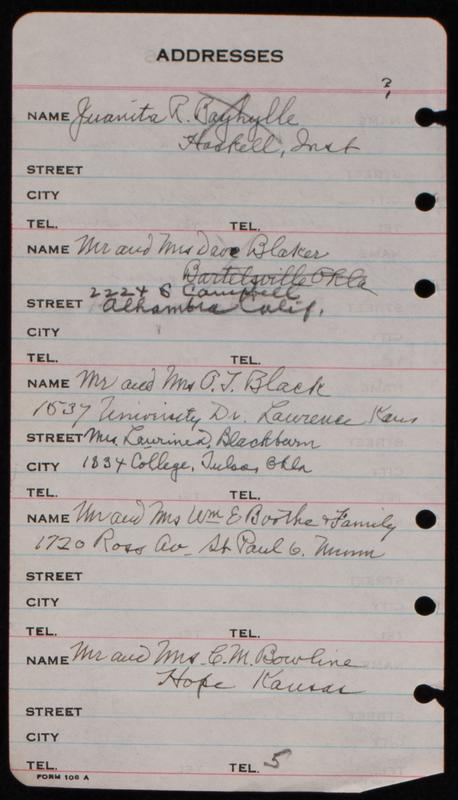 ADDRESSES
?
NAME Juanita R. Bayhylle
Haskell, Inst
STREET
CITY
TEL. TEL.
NAME Mr and Mrs Dave Blaker
Bartelsville Okla
2224 S Campbell
STREET Alhambra Calif.
CITY
TEL. TEL.
NAME Mr and Mrs O. T. Black
1537 University Dr. Lawrence Kans
STREET Mrs. Blackburn
CITY 1834 College, Tulsa, Okla
TEL. TEL.
NAME Mr and Mrs Wm E Boothe & Family
1720 Ross Av_ St Paul 6. Minn
STREET
CITY
TEL. TEL.
NAME Mr and Mrs. C. M. Bowline
Hope Kansas
STREET
CITY
TEL. TEL. 5
FORM 106 A